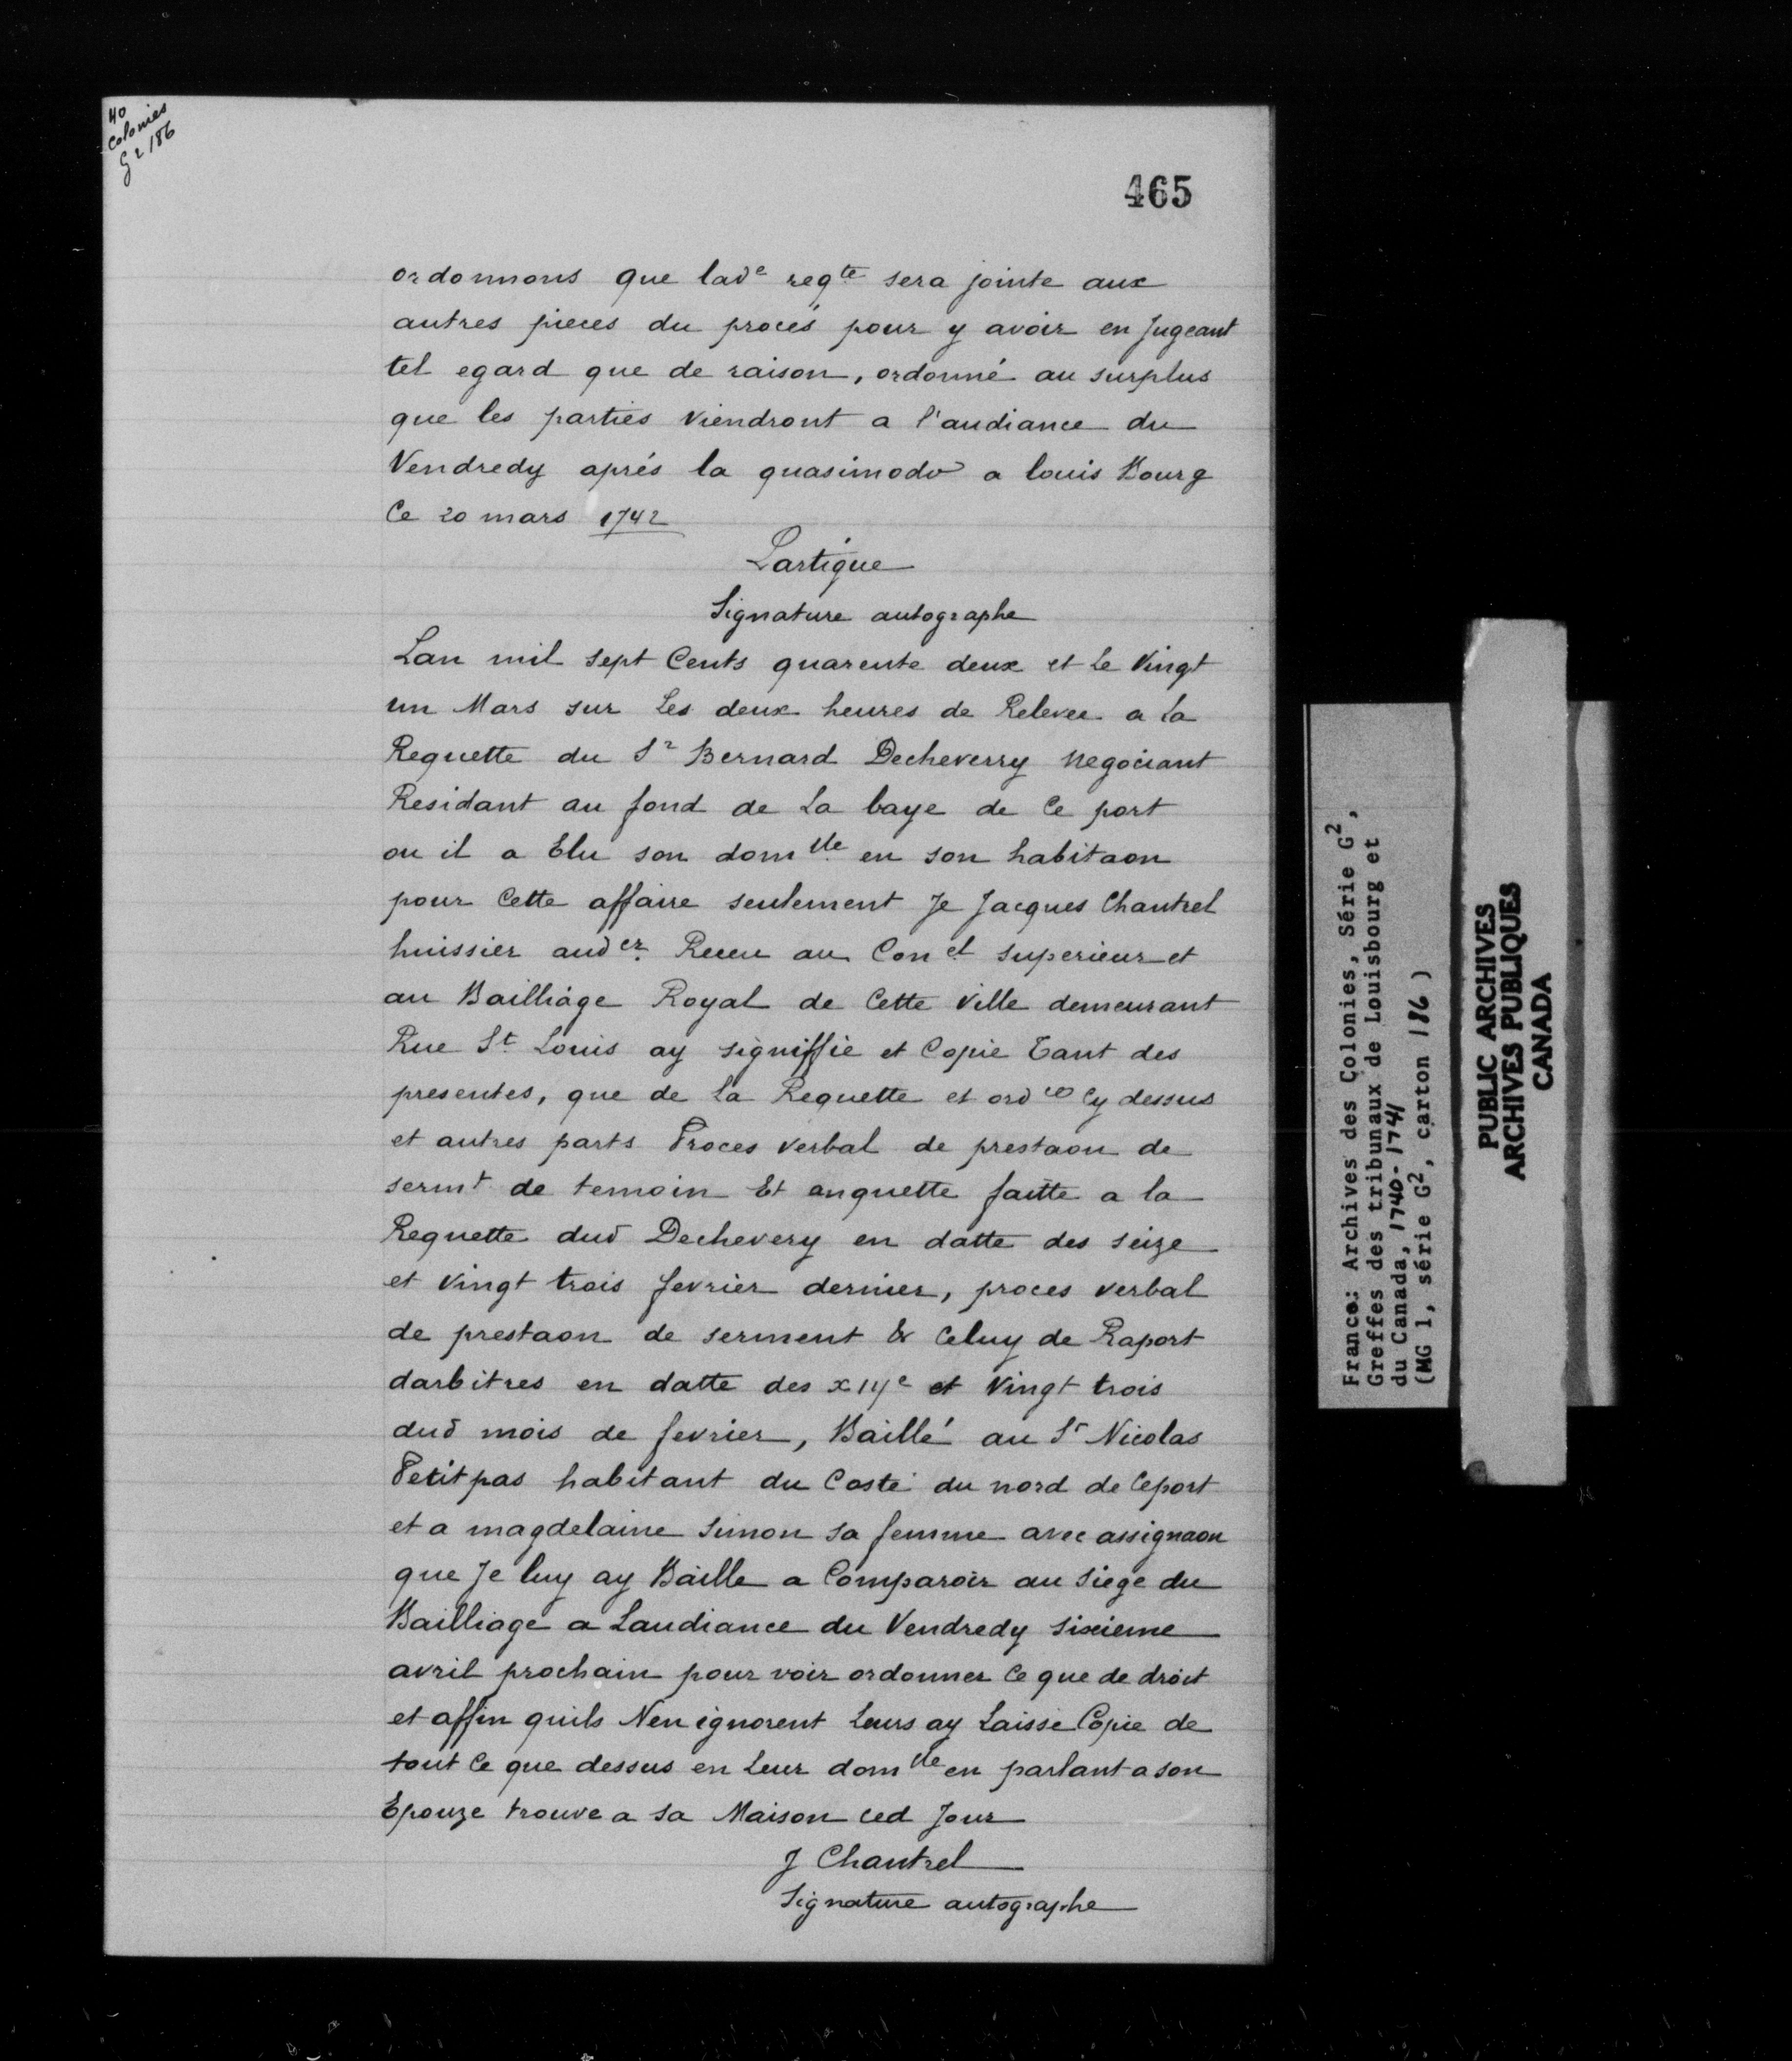 40
Colonies
G2 186
465
ordonnons que lade reqte sera jointe aux
autres pieces du procés pour y avoir en Jugeant
tel egard que de raison, ordonné au surplus
que les parties viendront a l'audiance du
Vendredy aprés la quasimodo a louis Bourg
Ce 20 mars 1742
Lartigue
Signature autographe
Lan mil sept Cents quarente deux et Le Vingt
un Mars sur Les deux heures de Relevee a La
Requette du Sr Bernard Decheverry negociant
Residant au fond de La baye de Ce port
ou il a Elu son domlle en son habitaon
pour Cette affaire seulement Je Jacques Chantrel
huissier auder Receu au Conel superieur et
au Bailliage Royal de Cette Ville demeurant
Rue St Louis ay signiffie et Copie Tant des
presentes, que de La Requette et ordce Cy dessus
et autres parts Proces verbal de prestaon de
sermt de temoin Et anquette faitte a la
Requette dud Dechevery en datte des seize
et vingt trois fevrier dernier, proces verbal
de prestaon de serment & Celuy de Raport
darbitres en datte des x14e et Vingt trois
dud mois de fevrier, Baillé au Sr Nicolas
Petitpas habitant du Costé du nord de Ceport
et a magdelaine Simon sa femme avec assignaon
que Je luy ay Baille a Comparoir au siege du
Bailliage a Laudiance du Vendredy sixieme
avril prochain pour voir ordonner Ce que de droit
et affin quils Nen ignorent Leurs ay Laissé Copie de
tout Ce que dessus en Leur domlle en parlant a son
Epouze trouve a sa Maison Ced Jour
J Chantrel
Signature autographe
France: Archives des Colonies, Série G2,
Greffes des tribunaux de Louisbourg et
du Canada, 1740-1741
(MG 1, série G2, carton 186)
PUBLIC ARCHIVES
ARCHIVES PUBLIQUES
CANADA